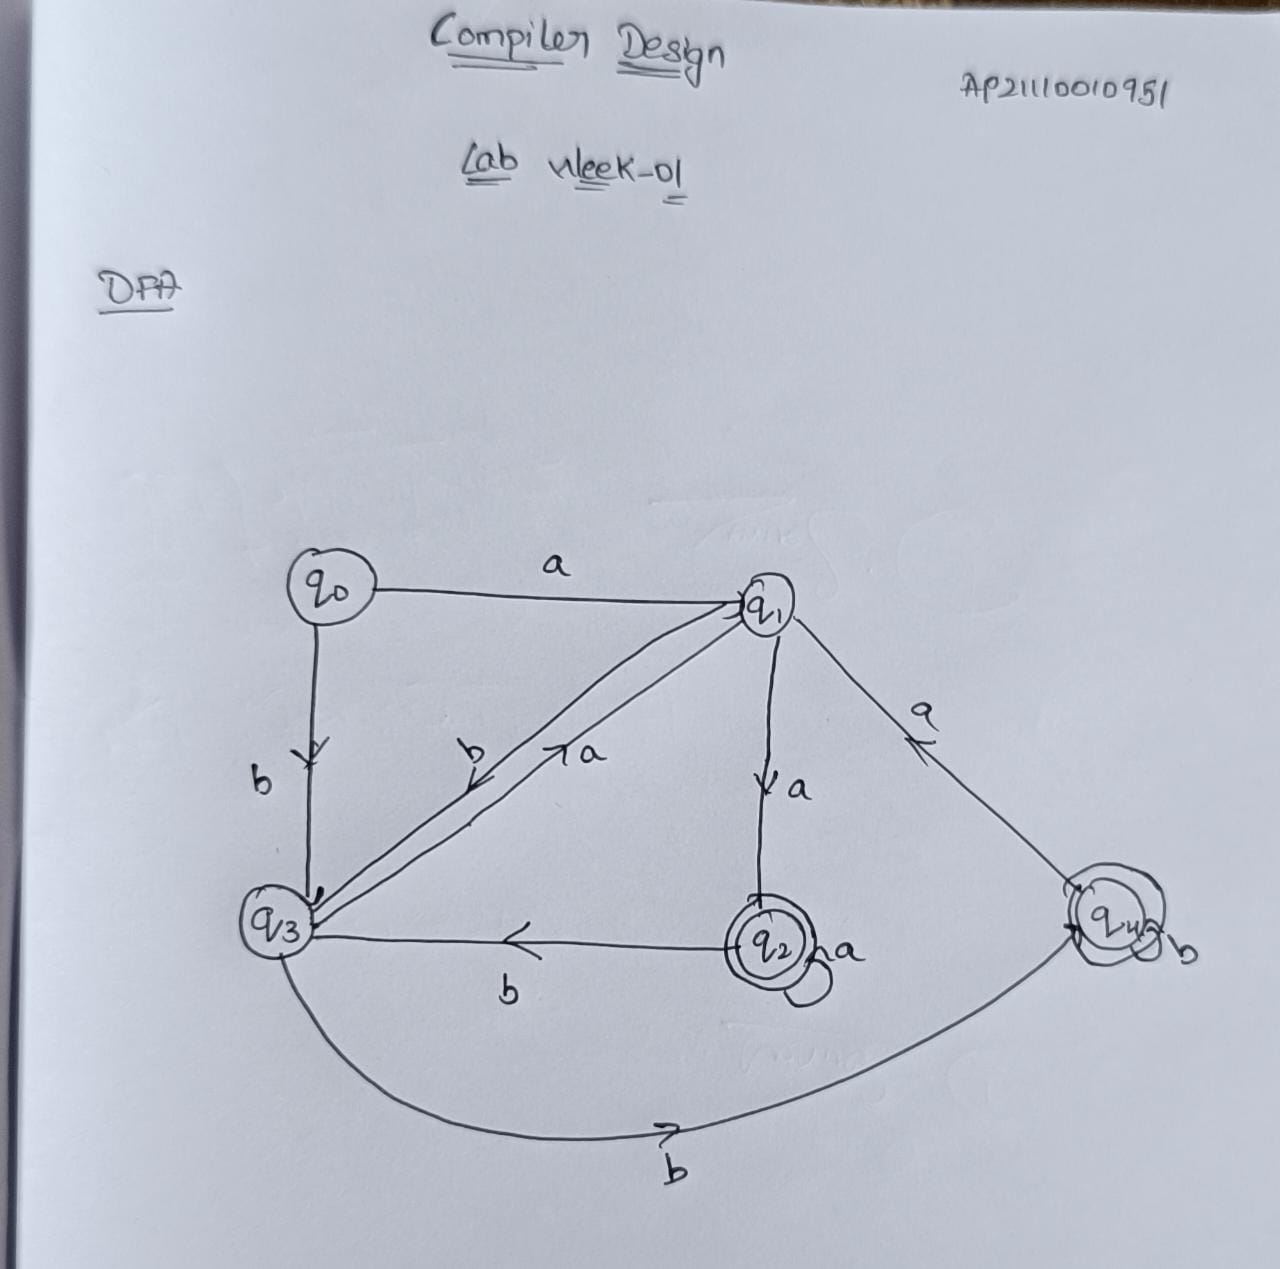 Compiler Design
AP21110010951
Lab Week-01
DFA
a
q0
q1
a
b
a
b
a
q3
q2
a
q4
b
b
b